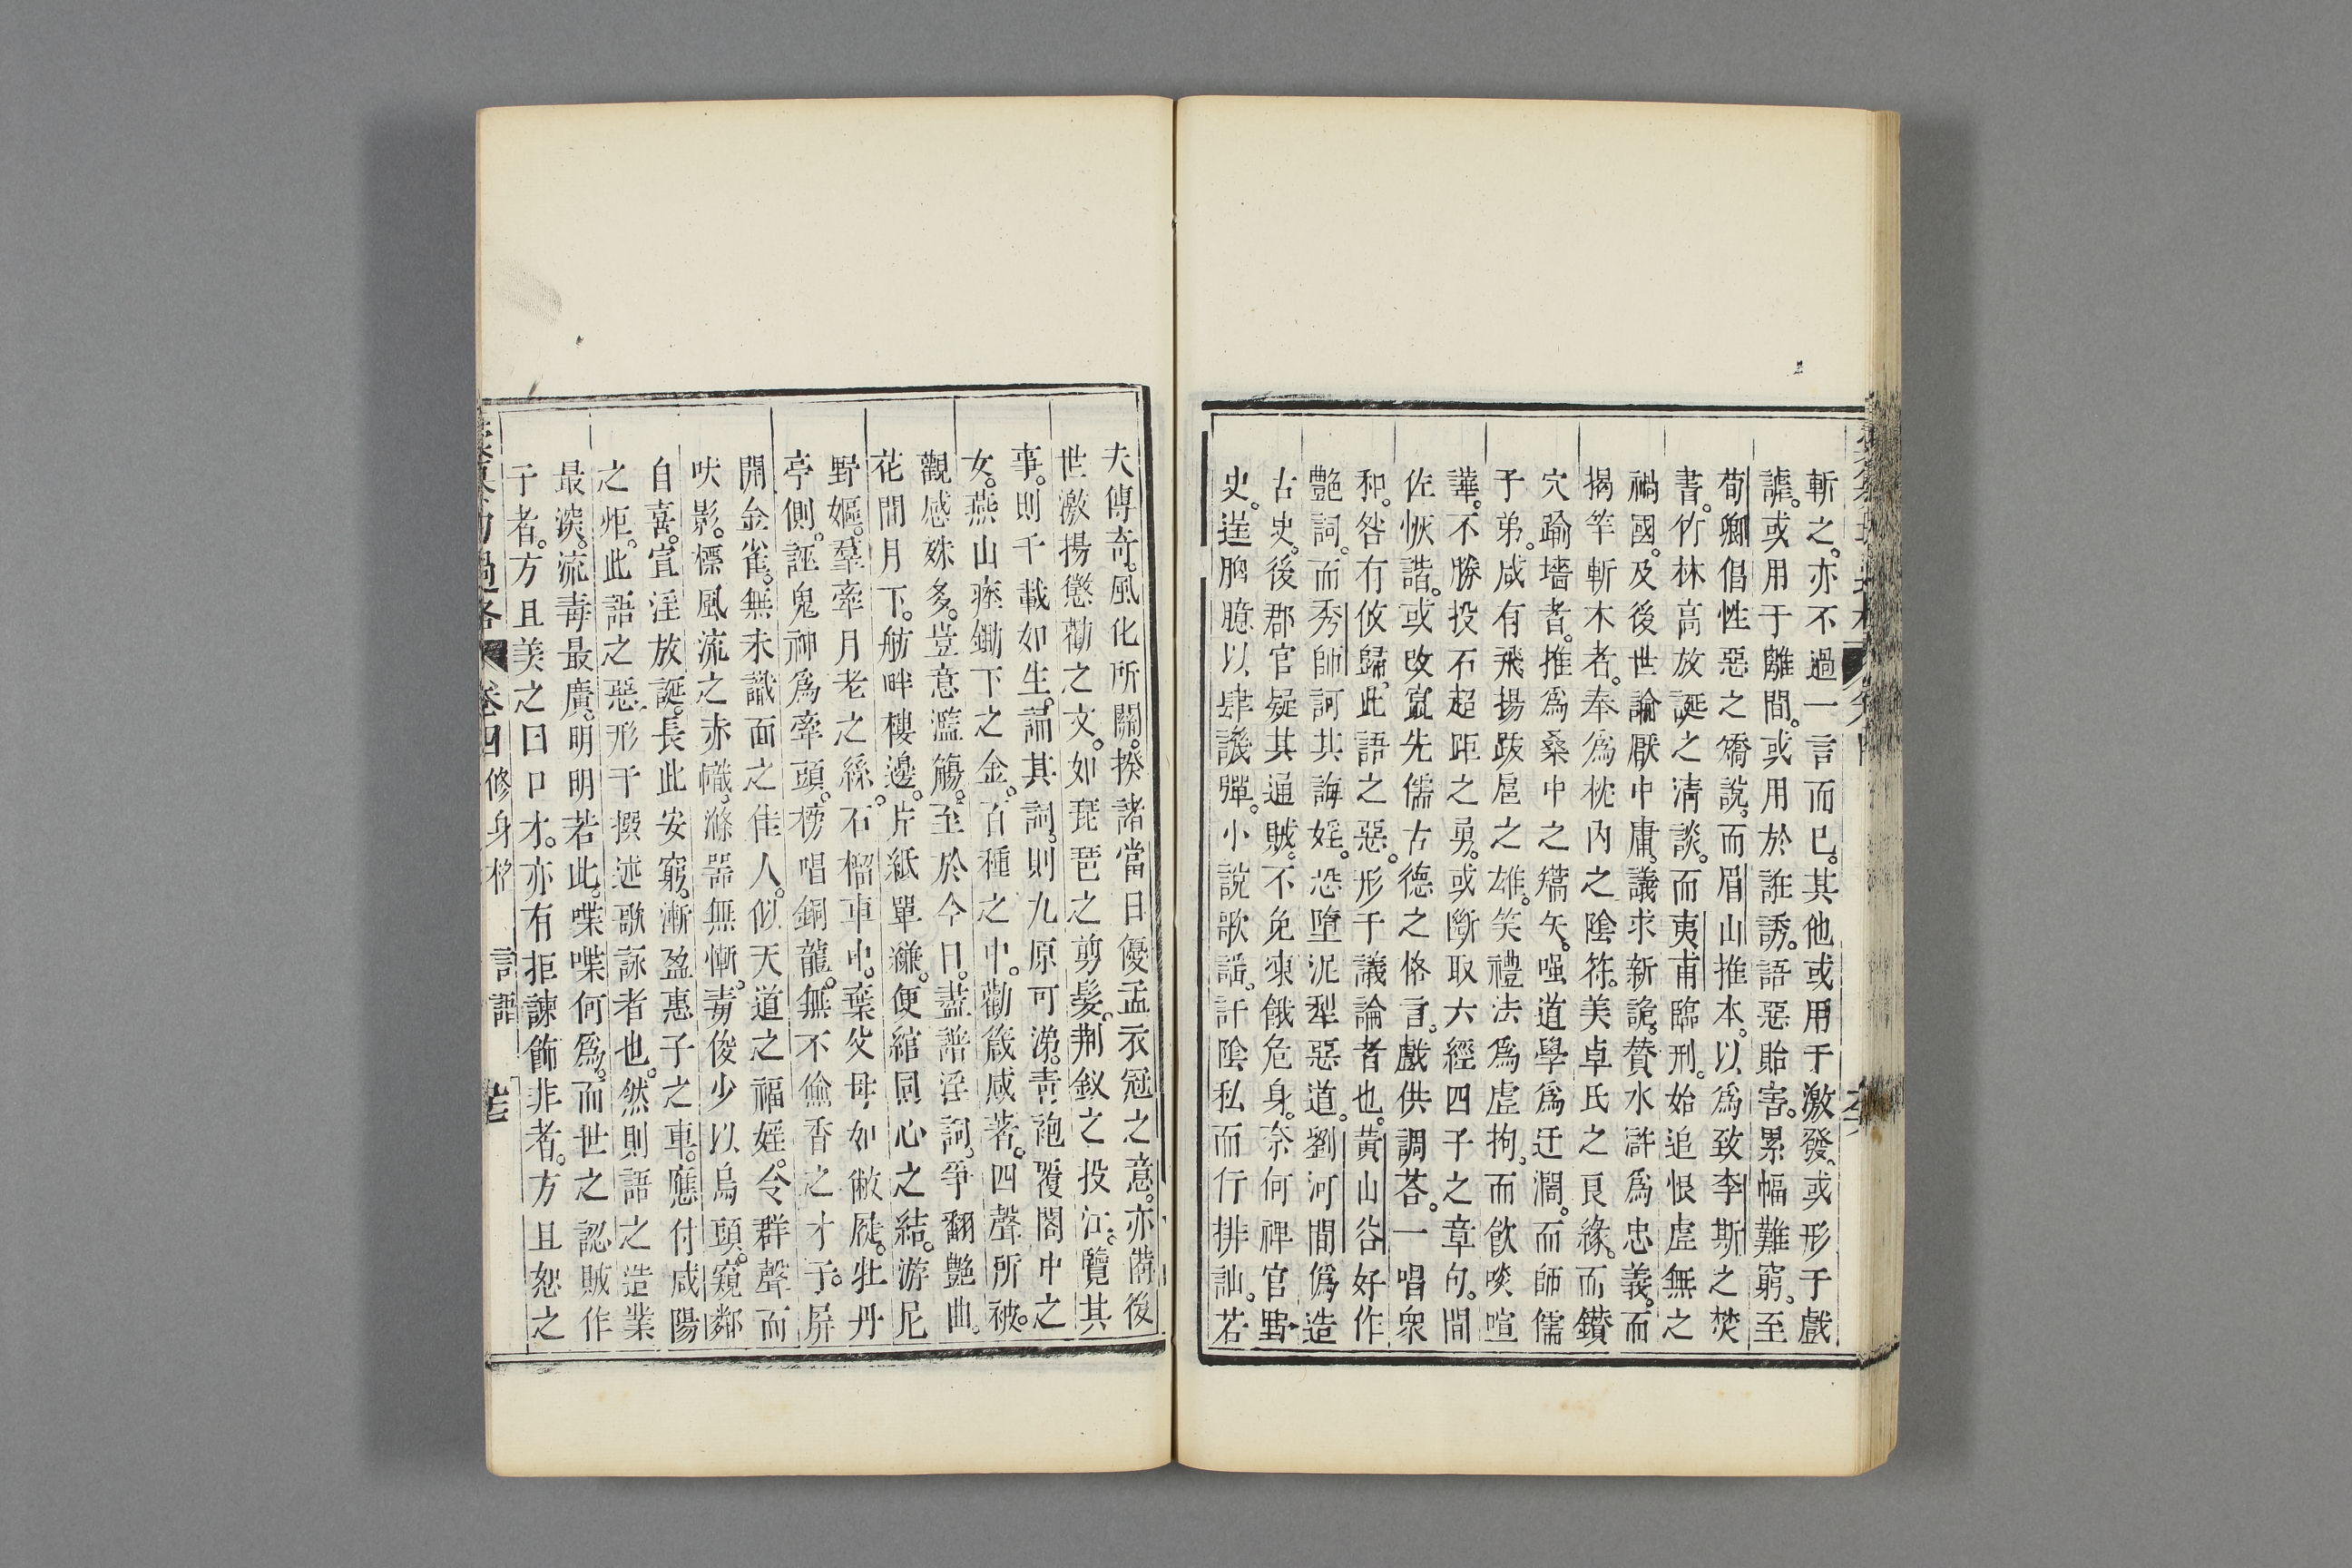 斬之。亦不過一言而已。其他或用于激發。或形于戲
謔。或用于離間。或用於誑誘。語惡貽害。累幅難窮。至
荀卿倡性惡之矯說。而眉山推本。以爲致李斯之焚
書。竹林高放誕之淸談。而夷甫臨刑。始追恨虛無之
禍國。及後世論厭中庸。議求新詭。贊水滸爲忠義。而
揭竿斬木者。奉爲枕內之陰符。美卓氏之良緣。而鑽
穴踰墻者。推爲桑中之矯矢。嗤道學爲迂濶。而師儒
子弟。咸有飛揚跋扈之雄。笑禮法爲虛拘。而飮啖喧
譁。不勝投石超距之勇。或斷取六經四子之章句。間
佐恢諧。或攺竄先儒古德之格言。戲供調荅。一唱衆
和。咎有攸歸。此語之惡。形于議論者也。黃山谷好作
艷詞。而秀師訶其誨婬。恐墮泥犁惡道。劉河間僞造
古史。後郡官疑其通賊。不免凍餓危身。奈何稗官野
史。逞胸臆以肆譏彈。小說歌謡。訐陰私而行排訕。若
夫傳奇。風化所關。揆諸當日優孟衣冠之意。亦猶後
世激揚懲勸之文。如琵琶之剪髮。荆釵之投江。覽其
事。則千載如生。誦其詞。則九原可涕。靑袍覆閣中之
女。燕山瘞鋤下之金。百種之中。勸箴咸著。四聲所被。
觀感殊多。豈意濫觴。至於今日。盡譜淫詞。爭翻艷曲。
花間月下。舫畔樓邊。片紙單縑。便綰同心之結。游尼
野嫗。羣牽月老之絲。石榴車中。棄父母如敝屣。牡丹
亭側。誣鬼神爲牽頭。榜唱銅龍。無不偷香之才子。屏
開金雀。無未識面之佳人。似天道之福婬。令群聲而
吠影。標風流之赤幟。滌器無慚。毒俊少以烏頭。窺鄰
自喜。宣淫放誕。長此安窮。漸盈惠子之車。應付咸陽
之炬。此語之惡。形于撰述歌詠者也。然則語之造業
最深。流毒最廣。明明若此。喋喋何爲。而世之認賊作
子者。方且美之曰口才。亦有拒諫飾非者。方且恕之
卷四 修身格 言語